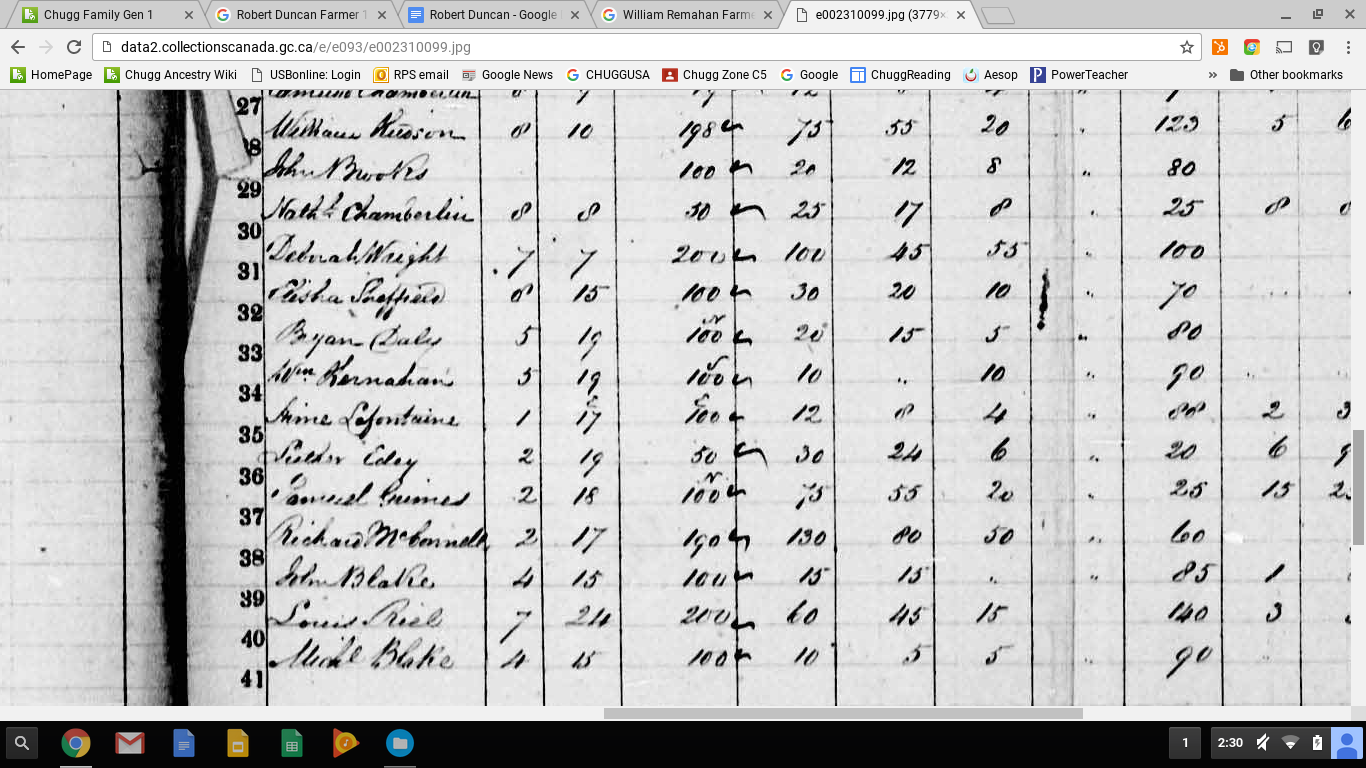 Chugg Family Gen 1 Robert Duncan Farmer 1 Robert Duncan - Google William Remahan Farme e002310099.jpg (3779×
data2.collectionscanada.gc.ca/e/e093/e002310099.jpg
HomePage Chugg Ancestry Wiki USBonline: Login RPS email Google News CHUGGUSA Chugg Zone C5 Google ChuggReading Aesop PowerTeacher » Other bookmarks
27 Chamberlin
28 William Hudson 8 10 198 75 55 20 " 123 5 6
29 John Brooks 100 20 12 8 " 80
30 Nathl. Chamberlin 8 8 50 25 17 8 " 25 8
31 Deborah Wright 7 7 200 100 45 55 " 100
32 Elisha Sheffield 8 15 100 30 20 10 " 70
33 Bryan Daly 5 19 N 100 20 15 5 " 80
34 Wm Kernahan 5 19 S 100 10 " 10 " 90 "
35 Aime Lafontaine 1 17 E 100 12 8 4 " 88 2 3
36 Luther Edey 2 19 50 30 24 6 " 20 6 9
37 Samuel Grimes 2 18 N 100 75 55 20 " 25 15 2
38 Richard McConnell 2 17 190 130 80 50 " 60
39 John Blake 4 15 100 15 15 " " 85 1
40 Louis Riel 7 24 200 60 45 15 140 3
41 Michl Blake 4 15 100 10 5 5 " 90
1 2:30